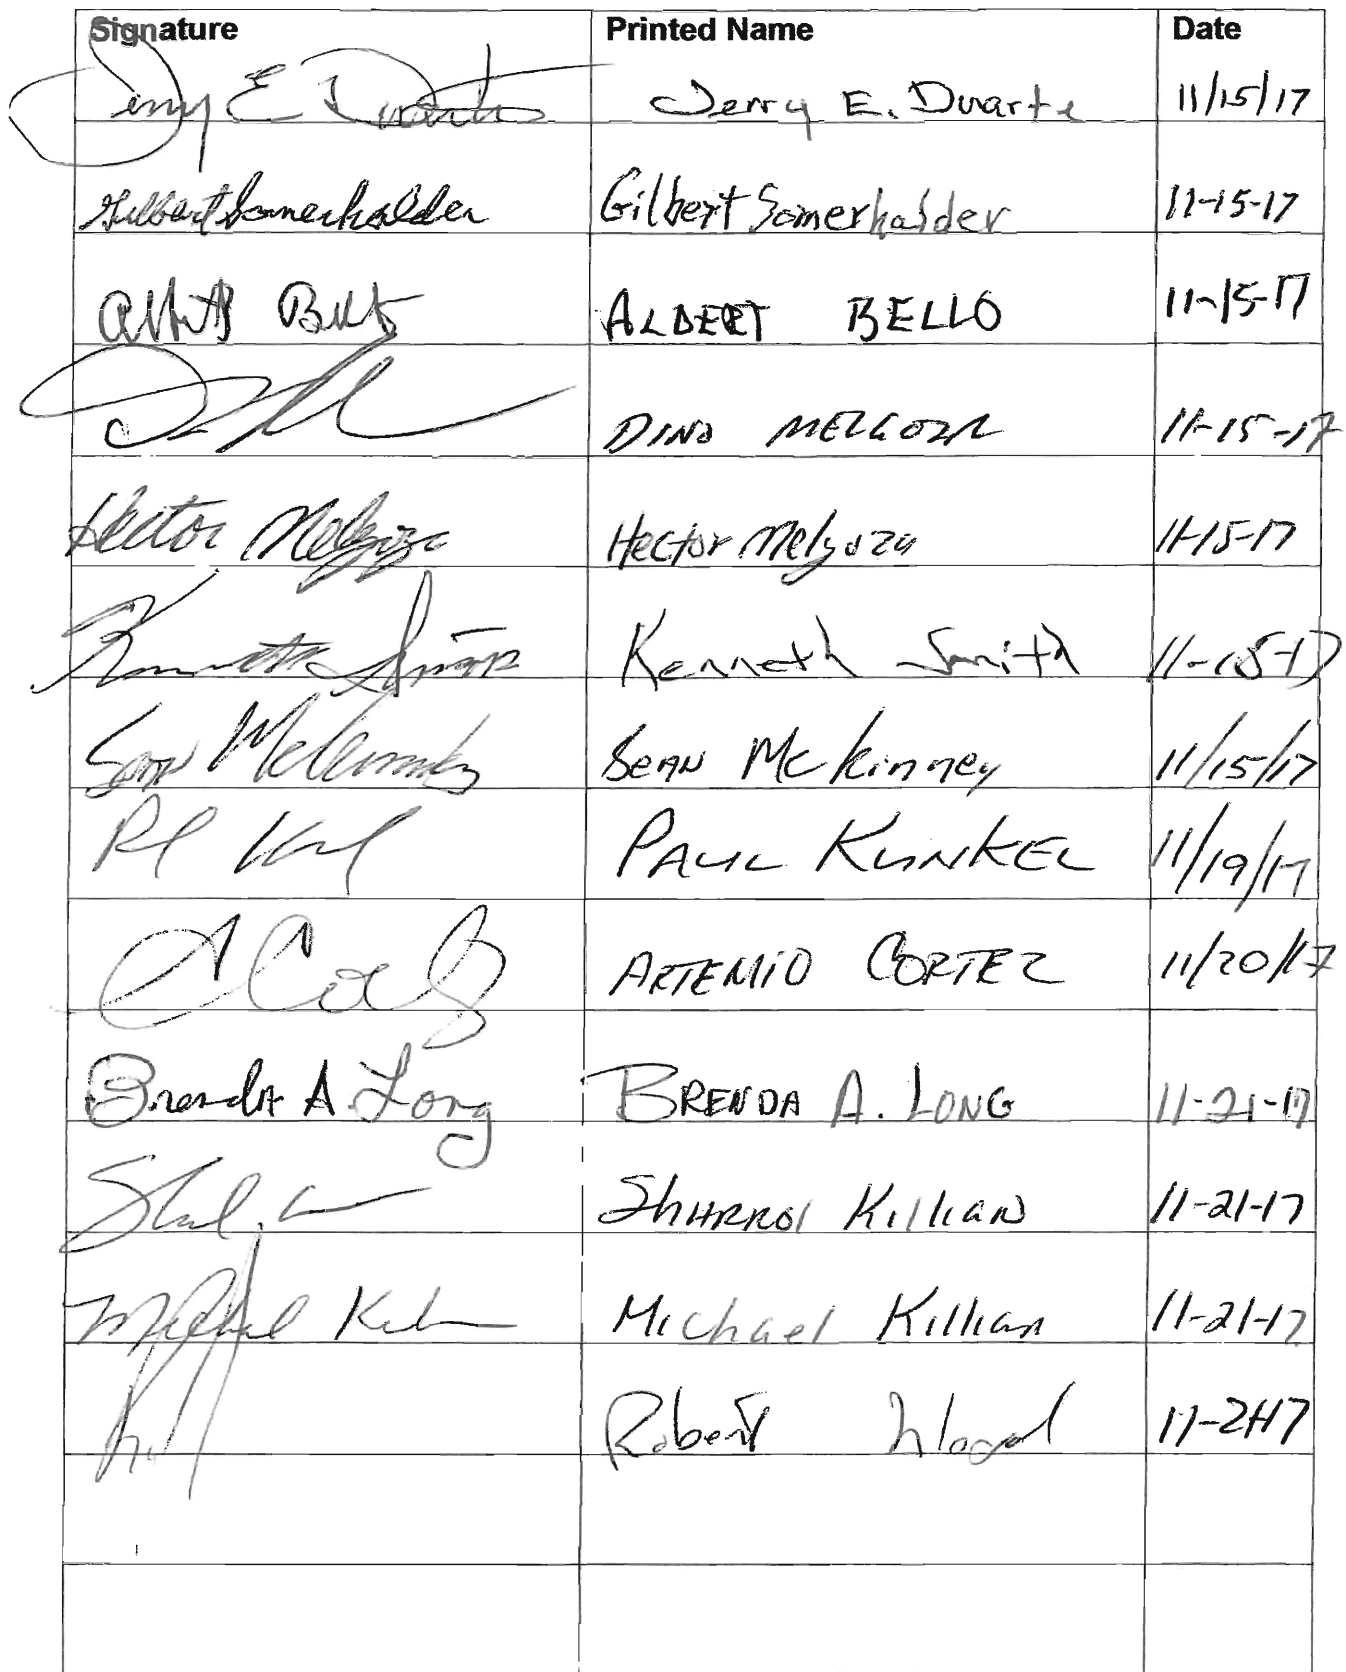 Signature Printed Name Date
Jerry E Duarte Jerry E. Duarte 11/15/17
Gilbert Somerhalder Gilbert Somerhalder 11-15-17
Albert Bello ALBERT BELLO 11-15-17
DINO MELGOZA 11-15-17
Hector Melgoza Hector Melgoza 11-15-17
Kenneth Smith Kenneth Smith 11-15-17
Sean McKinney SEAN McKinney 11/15/17
PAUL KUNKEL 11/19/17
A Cortez ARTEMIO CORTEZ 11/20/17
Brenda A. Long BRENDA A. LONG 11-21-17
ShARROl KilliaN 11-21-17
Michael Killian Michael Killian 11-21-17
Robert Wood 11-21-17